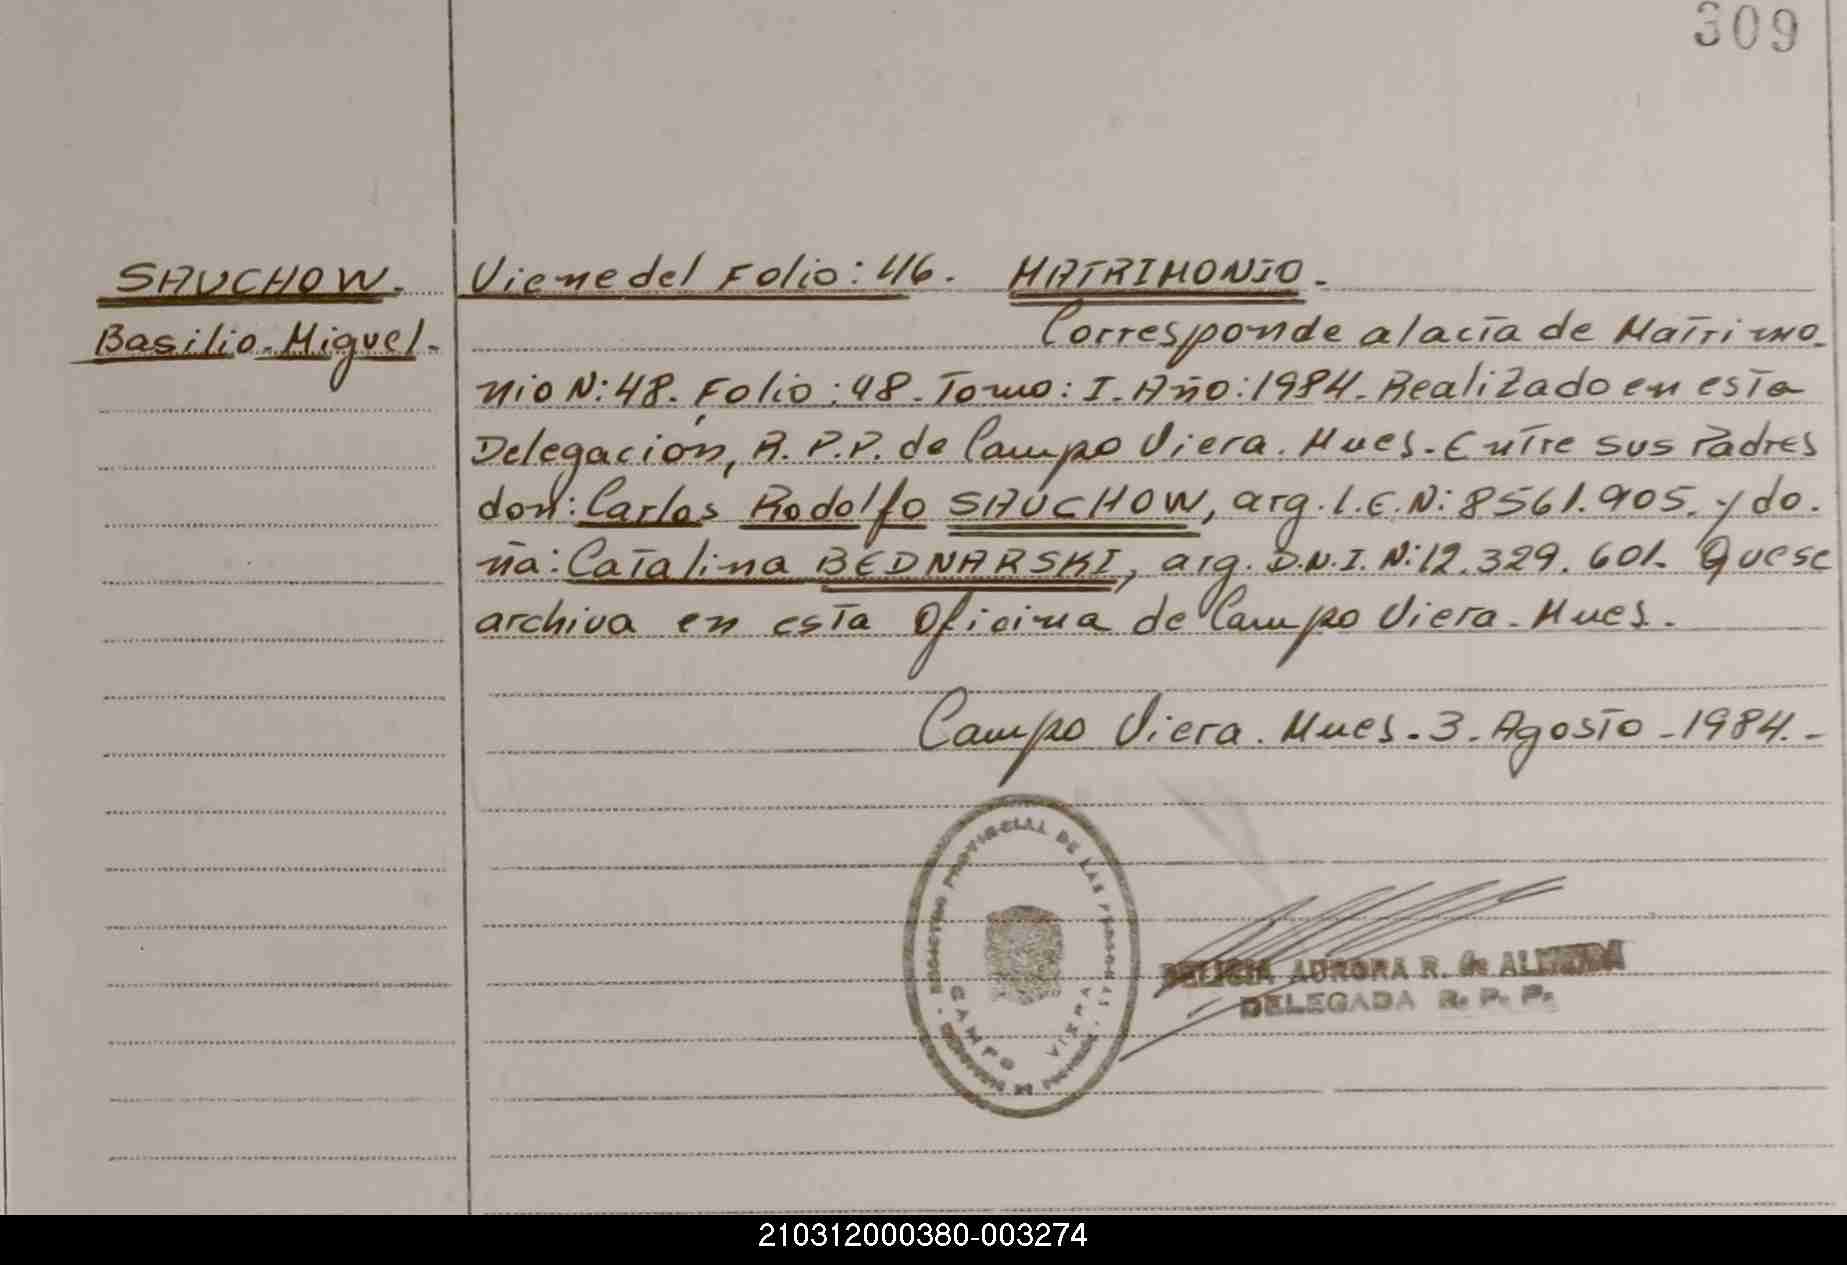 309
SAUCHOW.
Basilio Miguel.
Viene del Folio: 46. MATRIMONIO.
Corresponde al acta de Matrimo-
nio N: 48. Folio: 48. Tomo: I. Año: 1984. Realizado en esta
Delegación, R. P.P. de Campo Viera. Mnes. Entre sus Padres
don: Carlos Rodolfo SAUCHOW, arg. L.E. N: 8561.905. y do.
ña: Catalina BEDNARSKI, arg. D.N.I. N: 12.329.601. Quese
archiva en esta Oficina de Campo Viera. Mnes.
Campo Viera. Mnes. 3. Agosto - 1984.-
PROVINCIAL DE LAS PERSONAS
CAMPO VIERA
DELICIA AURORA R. de ALMEIDA
DELEGADA R. P. P.
210312000380-003274